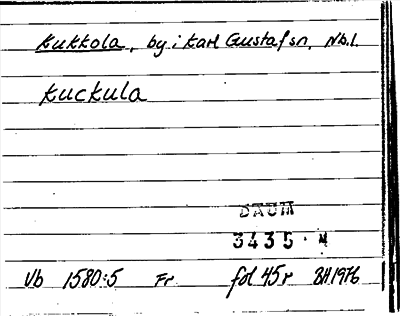 Kukkola, by i Karl Gustaf sn, Nb.l.
Kuckula
DAUM
3435 · M
Vb 1580:5 Fr fol 45r BH 1976